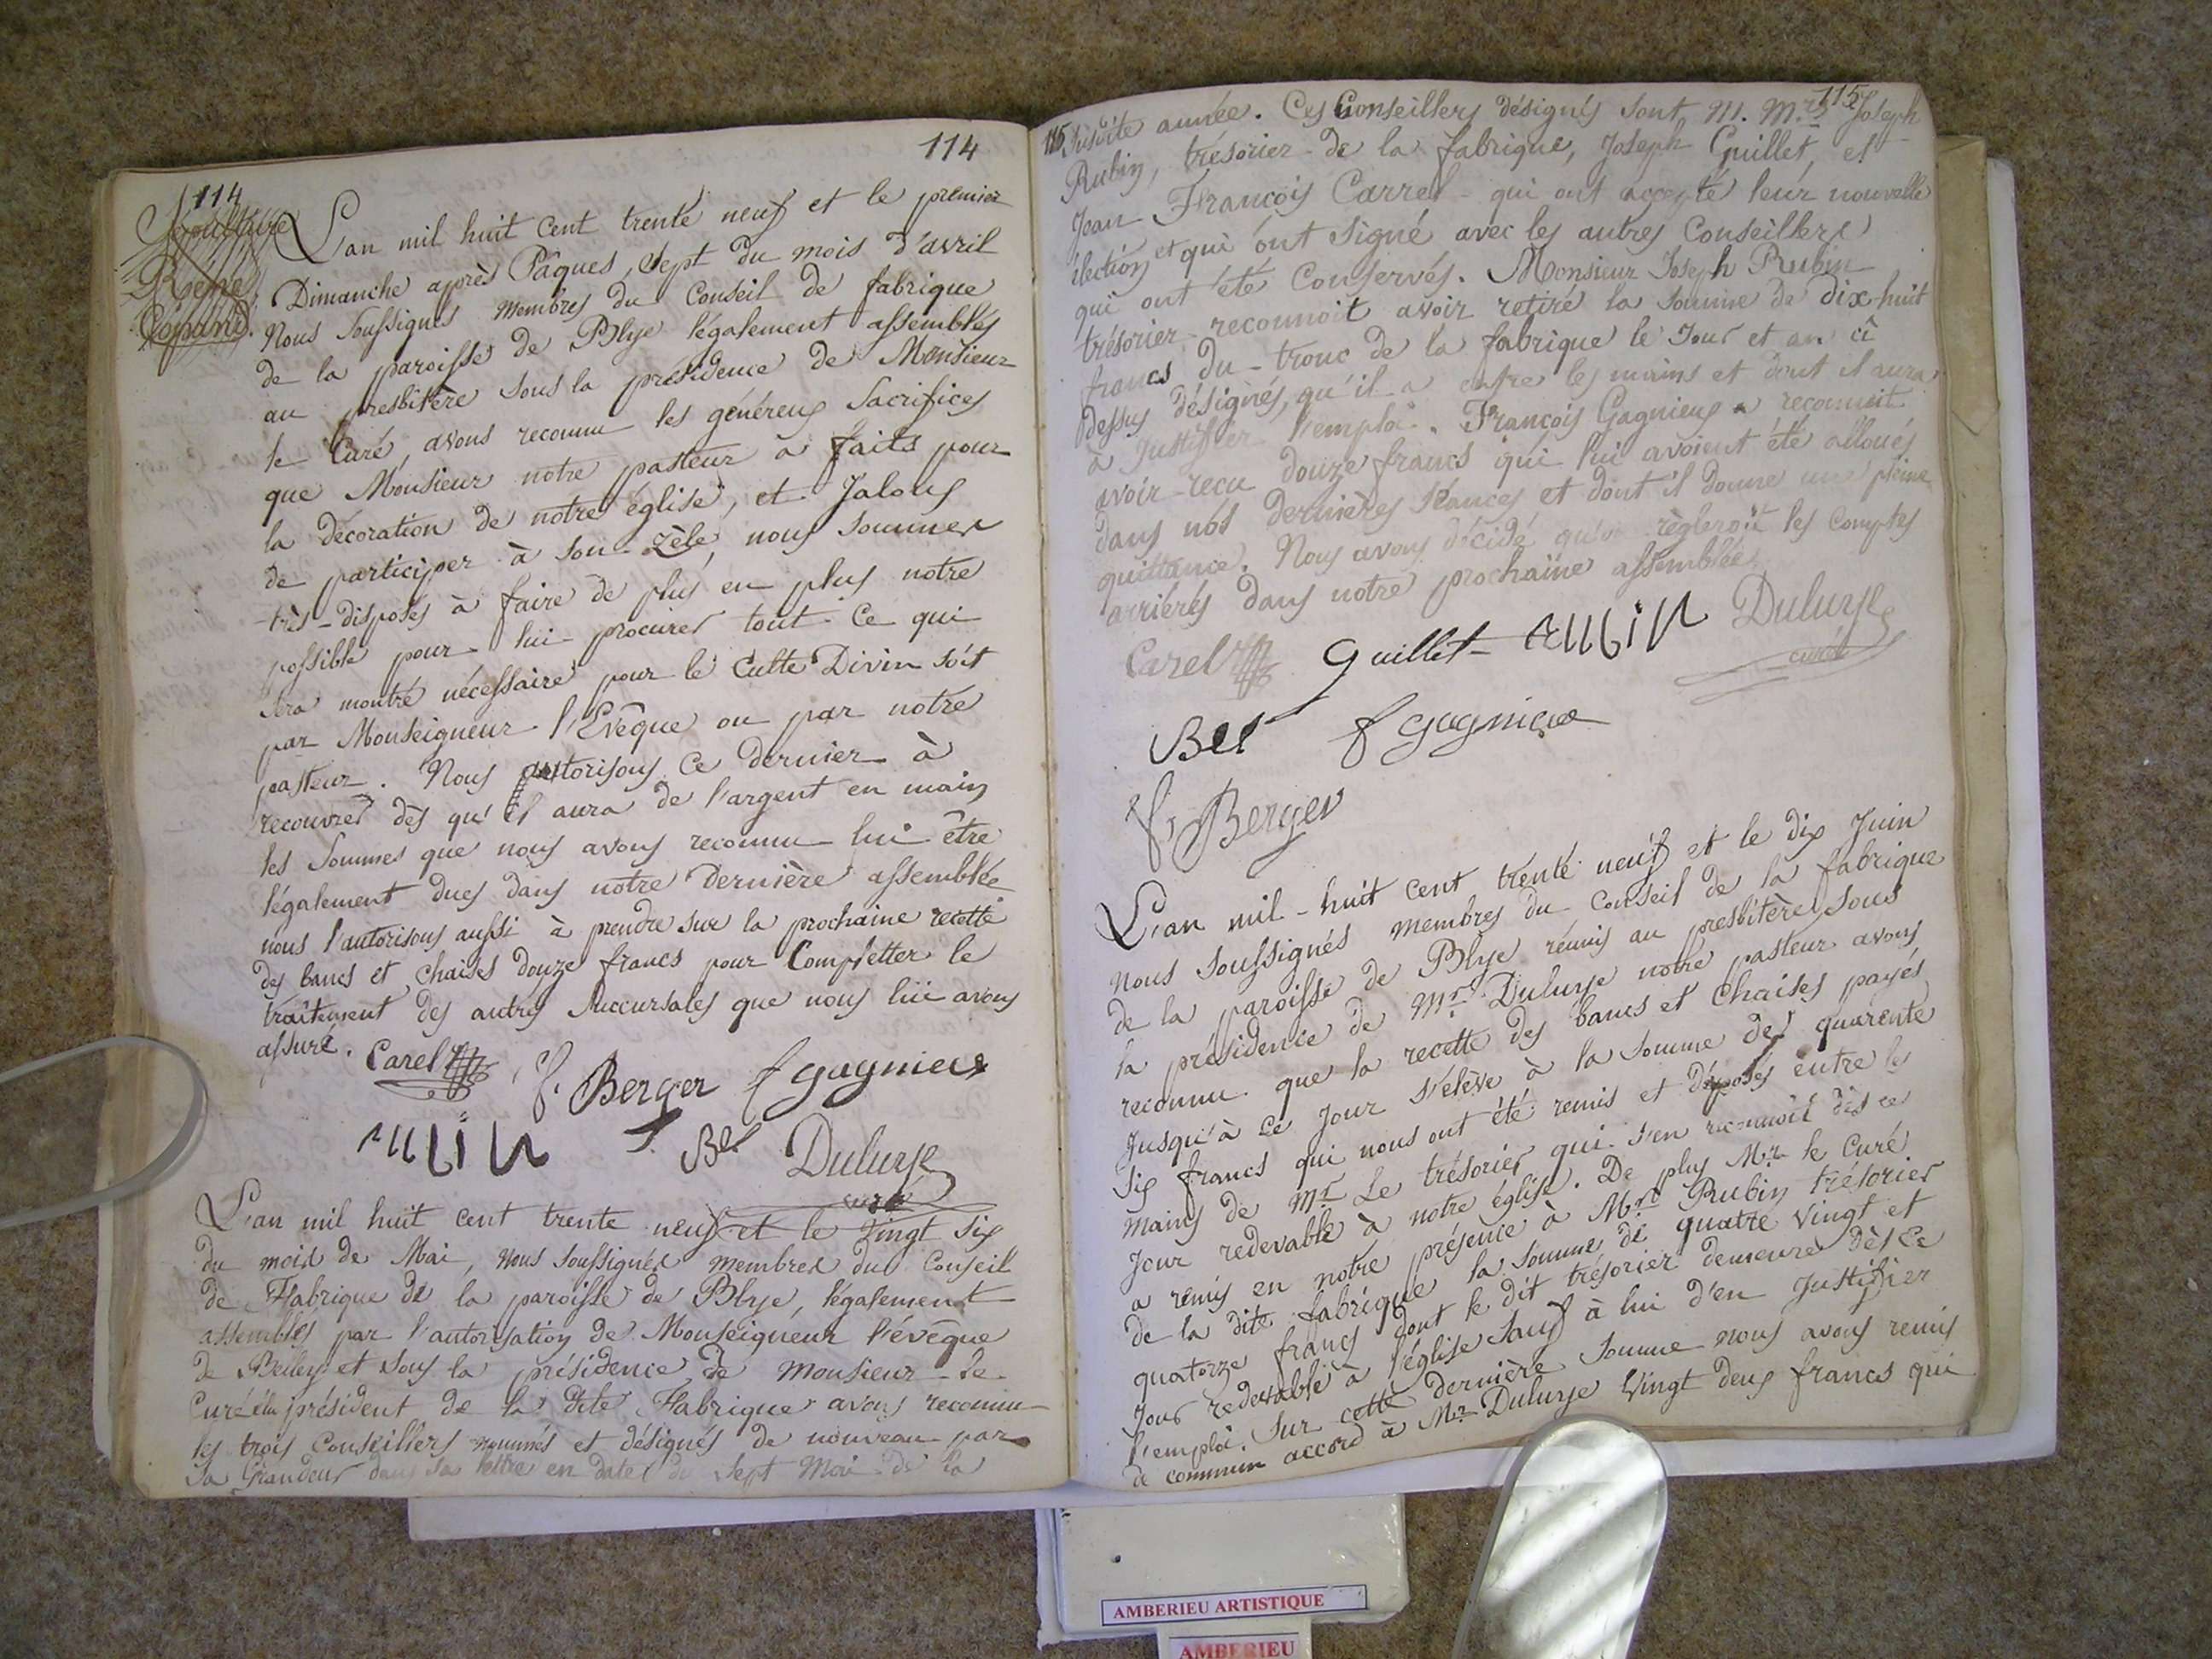 114
114
Sépulture
Réné
L'an mil huit cent trente neuf et le premier
Dimanche après Pâques, Sept du mois d'avril
Nous Soussignés membres du Conseil de fabrique
de la paroisse de Blye légalement assemblés
au presbitère sous la présidence de Monsieur
le Curé, avons reconnu les généreux Sacrifices
que Monsieur notre pasteur a faits pour
la décoration de notre église, et Jaloux
de participer à son Zèle, nous sommes
très-disposés à faire de plus en plus notre
possible pour lui procurer tout ce qui
sera montré nécessaire pour le Culte Divin soit
par Monseigneur l'Evêque ou par notre
pasteur. Nous autorisons ce dernier à
recouvrer dès qu'il aura de l'argent en main
les Sommes que nous avons reconnu lui être
légalement dues dans notre Dernière assemblée
nous l'autorisons aussi à prendre sur la prochaine recette
des bancs et chaises douze francs pour Completter le
traitement des autres Succursales que nous lui avons
assuré. Carel f. Berger f gagnieux
rubin J. Bel Duluye
curé
L'an mil huit cent trente neuf et le Vingt six
du mois de Mai, nous soussignés membres du Conseil
de Fabrique de la paroisse de Blye, légalement
assemblés par l'autorisation de Monseigneur l'évêque
de Belley et sous la présidence de Monsieur le
Curé élu président de la dite Fabrique avons reconnu
les trois Conseillers nommés et désignés de nouveau par
Sa Grandeur dans sa lettre en date du Sept Mai de la
115
115 susdite année. Ces Conseillers désignés sont M. Mrs Joseph
Rubin, trésorier de la fabrique, Joseph Guillet, et
Jean François Carrel qui ont accepté leur nouvelle
élection et qui ont signé avec les autres Conseillers
qui ont été Conservés. Monsieur Joseph Rubin
trésorier reconnoit avoir retiré la somme de dix huit
francs du tronc de la fabrique le Jour et an ci
dessus désignés, qu'il a entre les mains et dont il aura
à Justifier l'emploi. François Gagnieux a reconnu
avoir reçu douze francs qui lui avoient été alloués
dans nos dernières Séances et dont il donne une pleine
quittance. Nous avons décidé qu'on règleroit les Comptes
arriérés dans notre prochaine assemblée.
Carel Guillet rubin Duluye
curé
Bel f gagnieux
f. Berger
L'an mil huit cent trente neuf et le dix Juin
nous Soussignés membres du Conseil de la fabrique
de la paroisse de Blye réunis au presbitère sous
la présidence de Mr Duluye notre pasteur avons
reconnu que la recette des bancs et Chaises payés
Jusqu'à ce Jour s'elève à la somme de quarente
six francs qui nous ont été remis et déposés entre les
mains de Mr Le trésorier qui s'en reconnoit dès ce
Jour redevable à notre église. De plus Mr le Curé
a remis en notre présence à Mr Rubin trésorier
de la dite fabrique la somme de quatre vingt et
quatorze francs dont le dit trésorier demeure dès ce
Jour redevable à l'église sauf à lui d'en Justifier
l'emploi. Sur cette dernière somme nous avons remis
de commun accord à Mr Duluye Vingt deux francs qui
AMBERIEU ARTISTIQUE
AMBERIEU